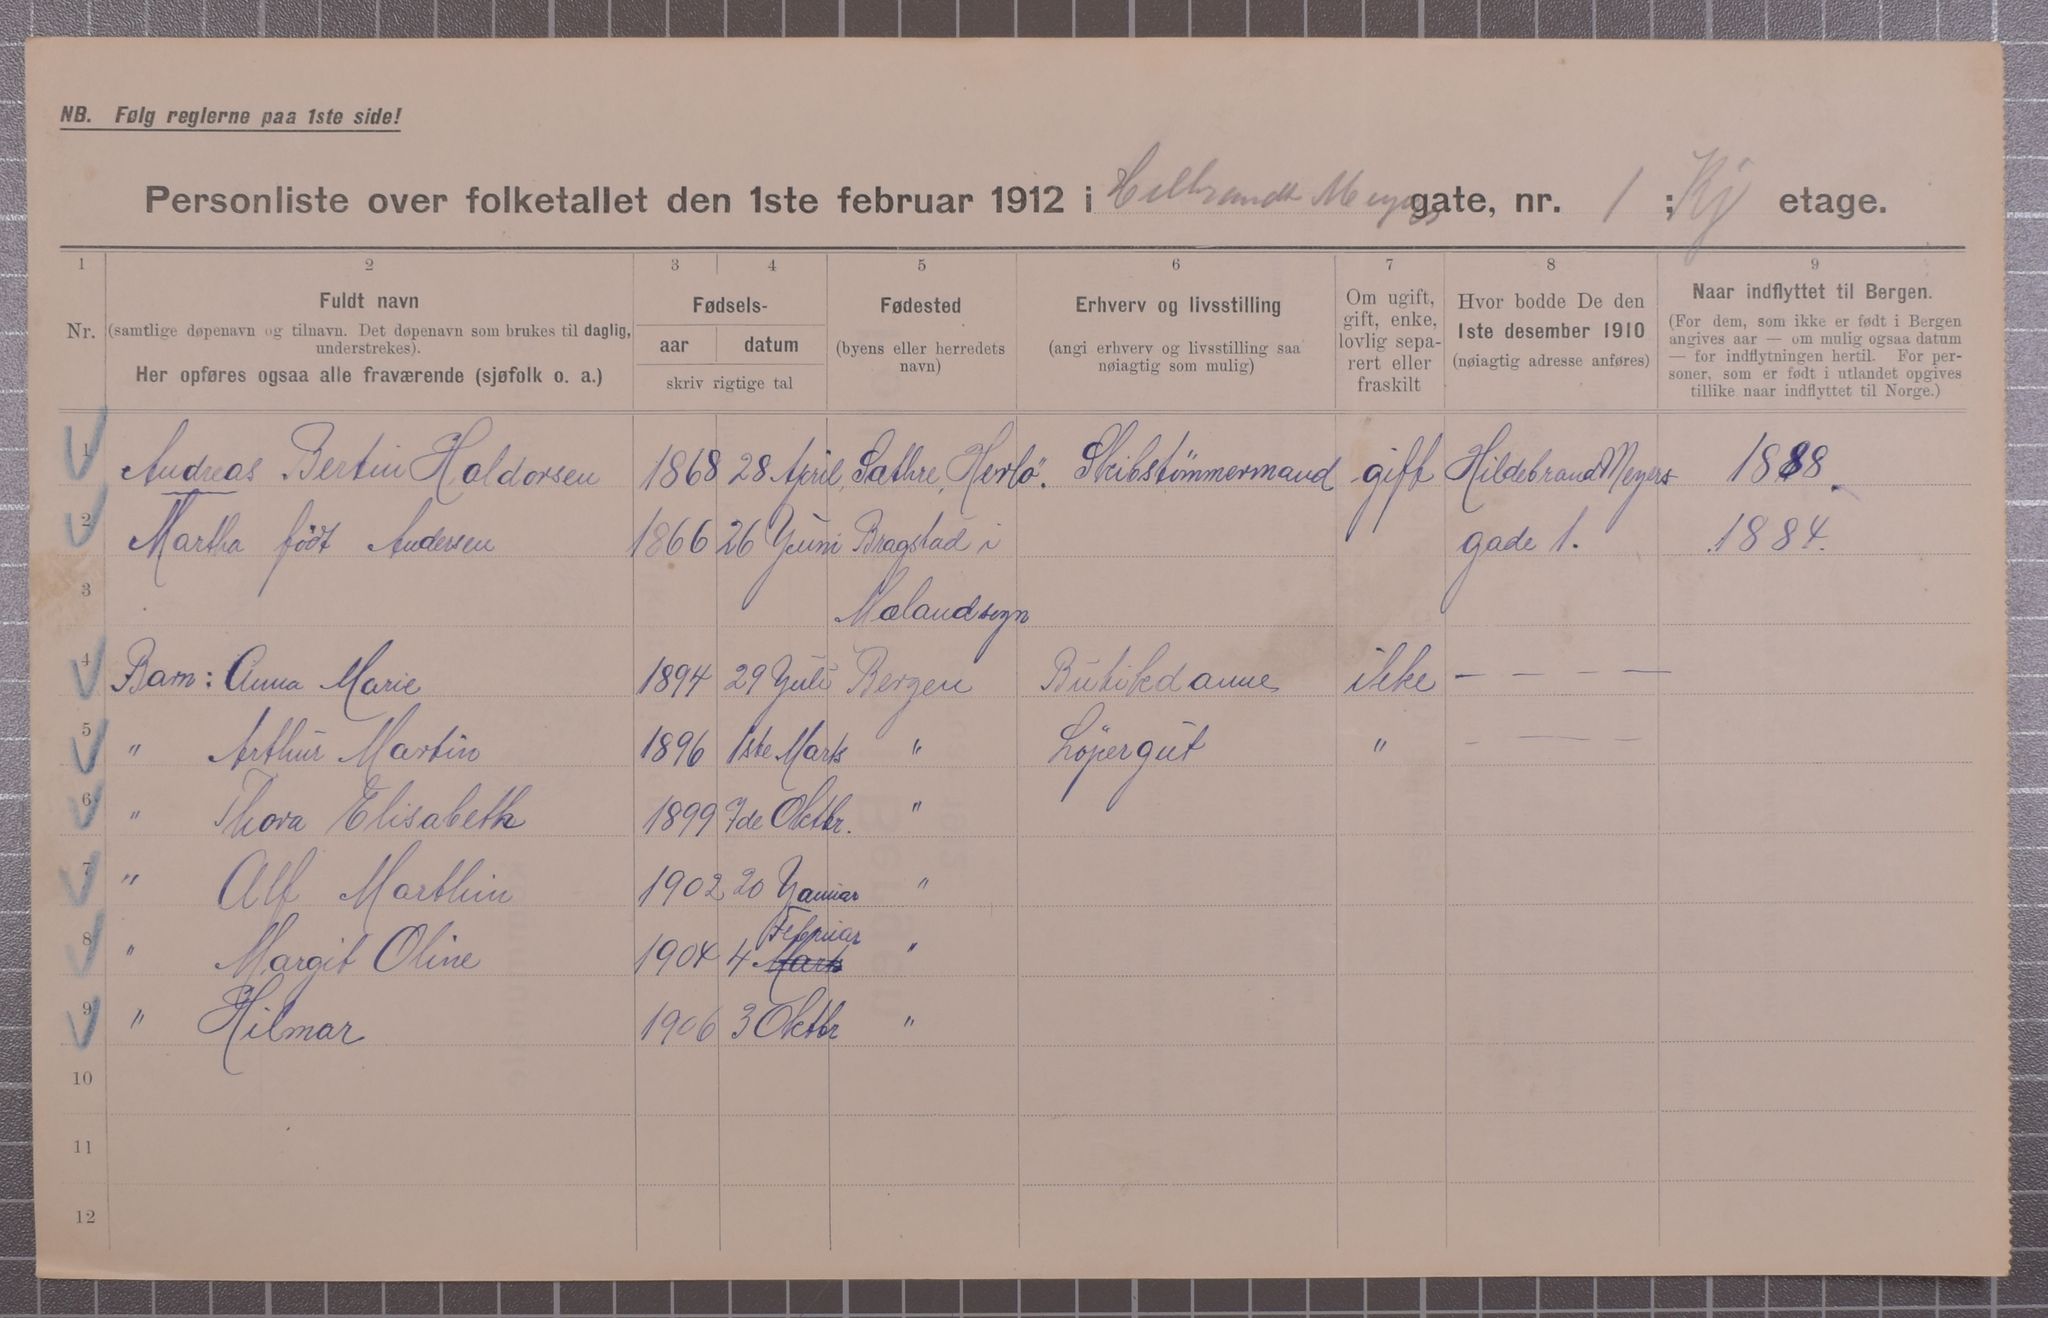 NB. Følg reglerne paa 1ste side!
Personliste over folketallet den 1ste februar 1912 i Hilbrandt Meyers gate, nr. 1 ; Kj etage.
1 2 3 4 5 6 7 8 9
Nr.
Fuldt navn
(samtlige døpenavn og tilnavn. Det døpenavn som brukes til daglig,
understrekes).
Her opføres ogsaa alle fraværende (sjøfolk o. a.)
Fødsels-
aar datum
skriv rigtige tal
Fødested
(byens eller herredets
navn)
Erhverv og livsstilling
(angi erhverv og livsstilling saa
nøiagtig som mulig)
Om ugift,
gift, enke,
lovlig sepa-
rert eller
fraskilt
Hvor bodde De den
1ste desember 1910
(nøiagtig adresse anføres)
Naar indflyttet til Bergen.
(For dem, som ikke er født i Bergen
angives aar — om mulig ogsaa datum
— for indflytningen hertil. For per-
soner, som er født i utlandet opgives
tillike naar indflyttet til Norge.)
1 Andreas Bertin Haldorsen 1868 28 April, Sæthre, Herlö. Skibstömmermand gift Hildebrand Meyers 1888.
2 Martha födt Andersen 1866 26 Yuni Bragstad i gade 1. 1884.
3 Mælandsogn
4 Barn: Anna Marie 1894 29 Yuli Bergen Butikdame ikke — — — —
5 " Arthur Martin 1896 1ste Marts " Löpergut " — — — —
6 " Thora Elisabeth 1899 7de Oktbr. "
7 " Alf Marthin 1902 20 Yanuar "
Februar
8 " Margit Oline 1904 4 Marts "
9 " Hilmar 1906 3 Oktbr "
10
11
12